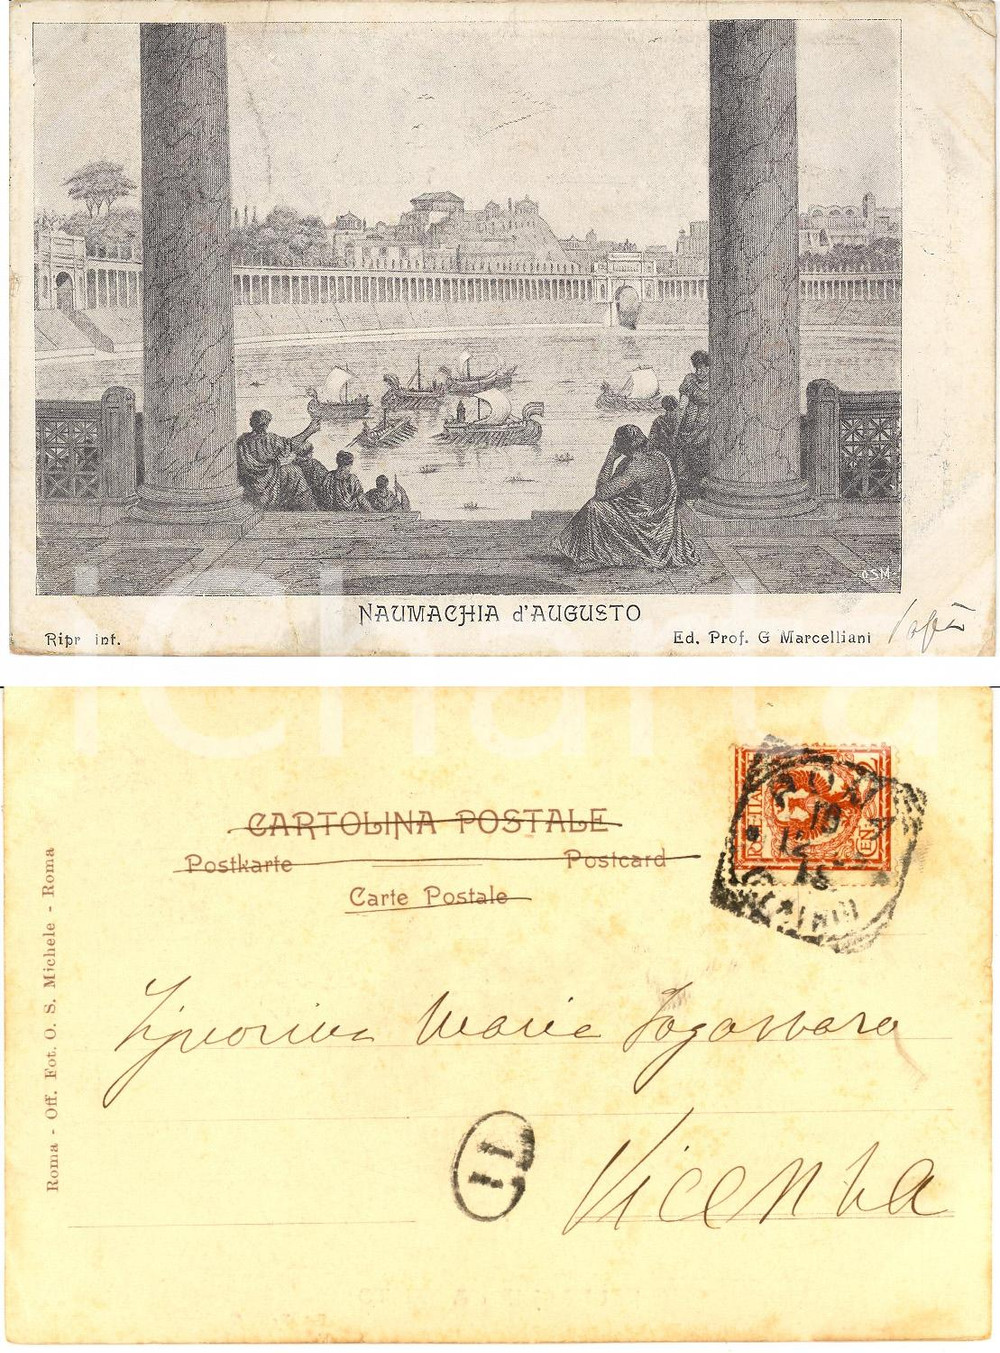 OSM
NAUMACHIA d'AUGUSTO
Ripr int.
Ed. Prof. G Marcelliani
iCharta
CARTOLINA POSTALE
Postkarte Postcard
Carte Postale
Roma - Off. Fot. O. S. Michele - Roma
10
12
Signorina Maria Fogazzaro
11
Vicenza